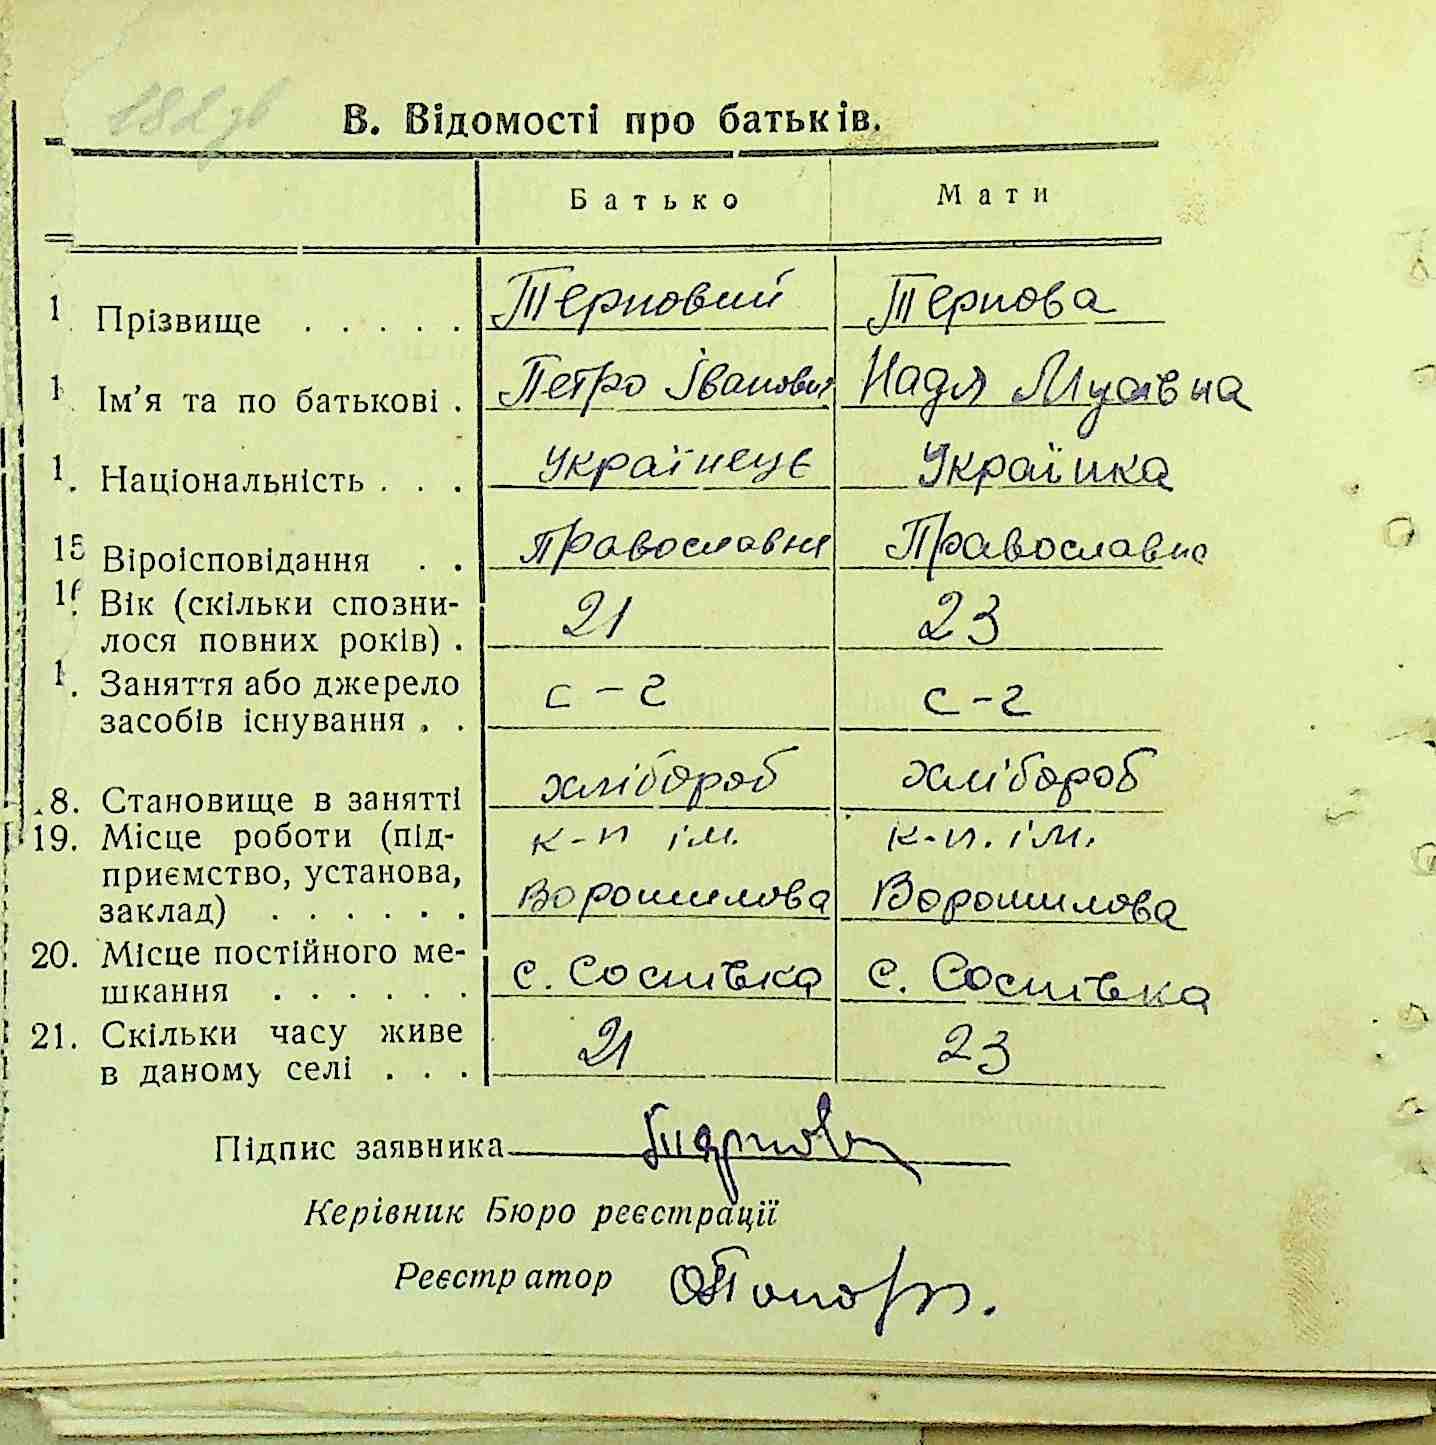 182зв
В. Відомості про батьків.
Батько Мати
1 Прізвище . . . . . Терновий Тернова
1. Ім'я та по батькові . Петро Іванович Надя Мусівна
1. Національність . . . Українець Українка
15 Віроісповідання . . Православне Православне
16. Вік (скільки сповни-
лося повних років) . 21 23
1. Заняття або джерело
засобів існування . . с-г с-г
18. Становище в занятті хлібороб хлібороб
19. Місце роботи (під- к-п ім. к-п. ім.
приємство, установа,
заклад) . . . . . . Ворошилова Ворошилова
20. Місце постійного ме-
шкання . . . . . . с. Соснівка с. Соснівка
21. Скільки часу живе
в даному селі . . . 21 23
Підпис заявника
Керівник Бюро реєстрації
Реєстратор